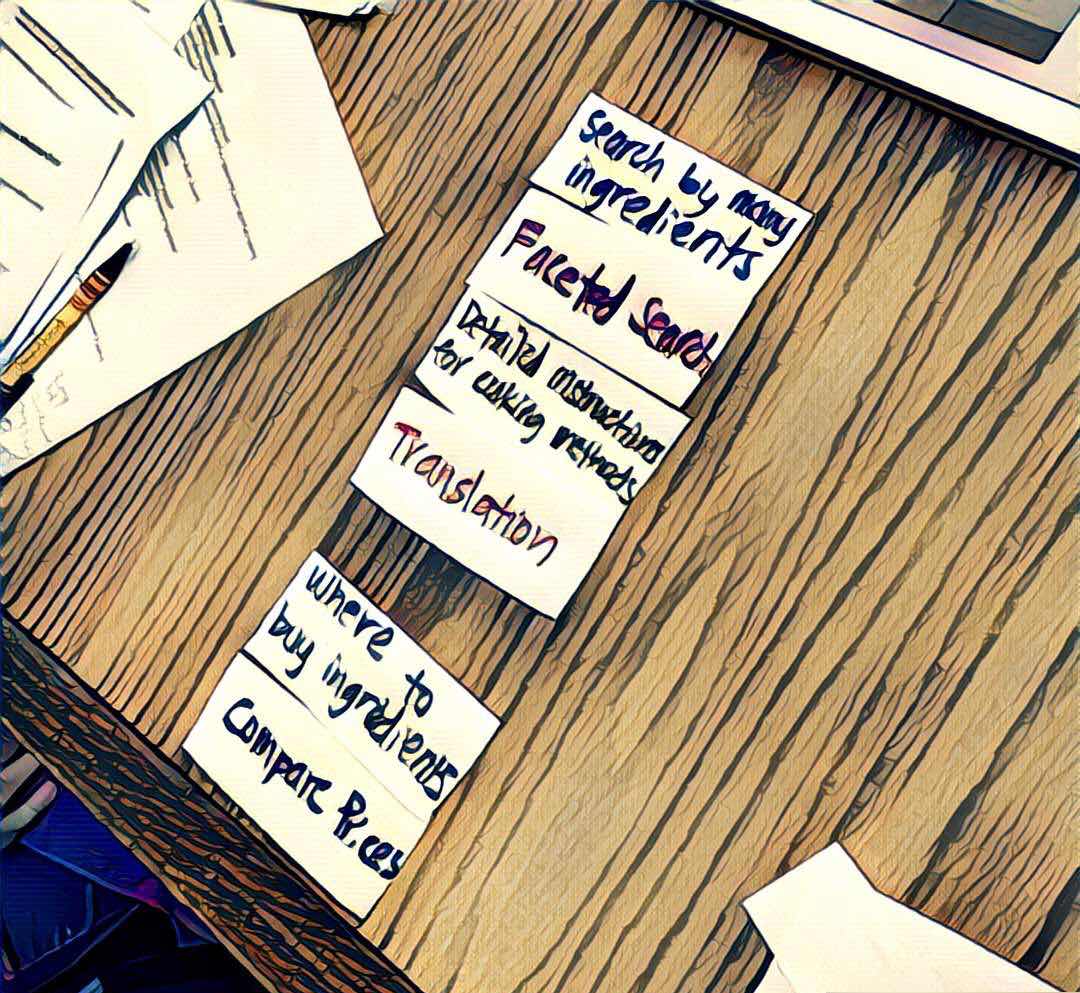 search by many
ingredients
Faceted Search
Detailed instructions
for cooking methods
Translation
where to
buy ingredients
Compare Prices